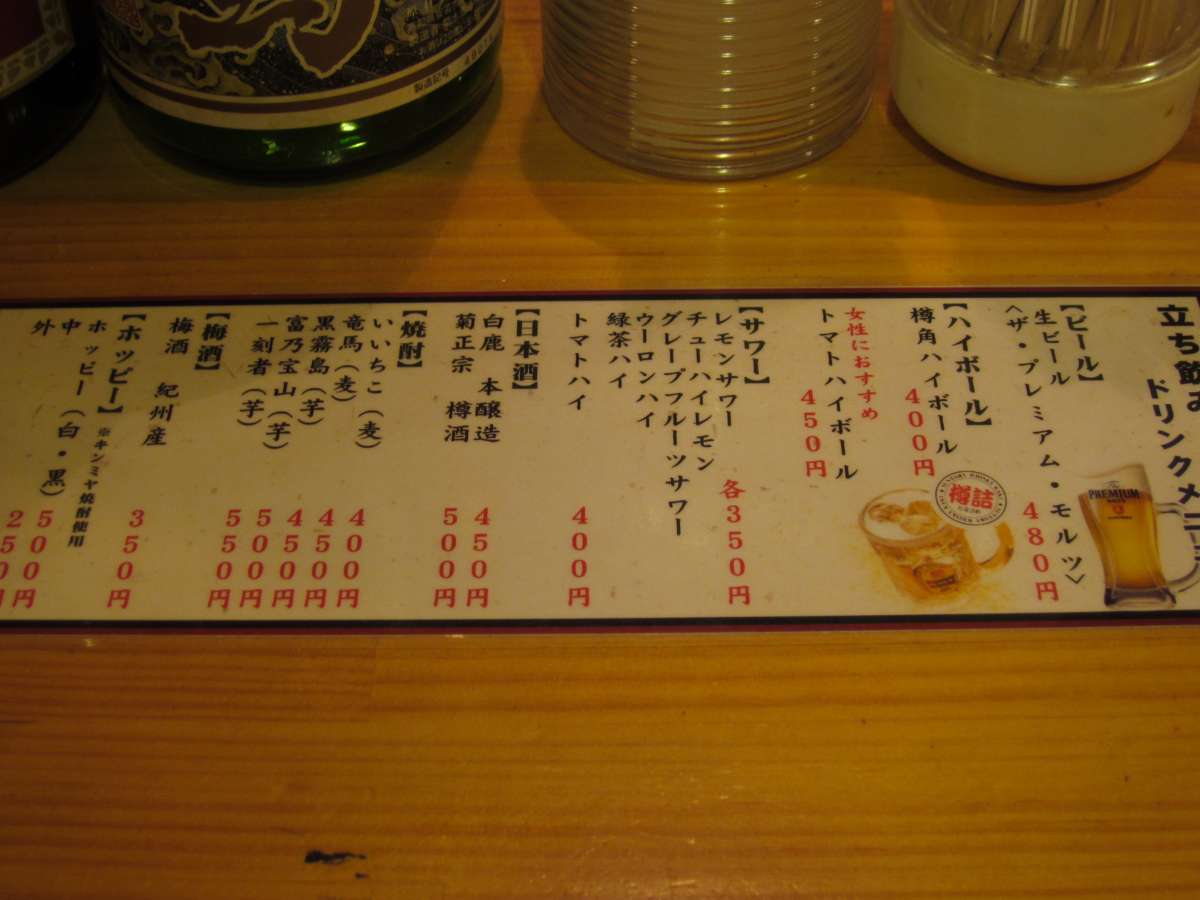 立ち飲み
ドリンクメニュー
【ビール】
生ビール
〈ザ・プレミアム・モルツ〉
480円
The
PREMIUM
【ハイボール】
樽角ハイボール
400円
樽詰
女性におすすめ
トマトハイボール
450円
【サワー】
レモンサワー 各350円
チューハイレモン
グレープフルーツサワー
ウーロンハイ
緑茶ハイ
トマトハイ 400円
【日本酒】
白鹿 本醸造 450円
菊正宗 樽酒 500円
【焼酎】
いいちこ(麦) 400円
竜馬(麦) 450円
黒霧島(芋) 450円
富乃宝山(芋) 500円
一刻者(芋) 550円
【梅酒】
梅酒 紀州産 350円
【ホッピー】 ※キンミヤ焼酎使用
ホッピー(白・黒) 500円
中 250円
外
製造記号